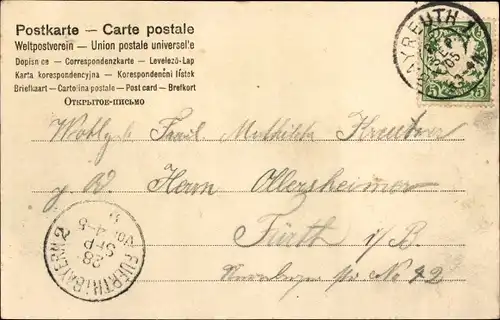 Postkarte — Carte postale
Weltpostverein — Union postale universelle
Dopisnice — Correspondenzkarte — Levelező-Lap
Karta korespondencyjna — Korespondenční lístek
Briefkaart — Cartolina postale — Post card — Brefkort
Открытое-письмо
BAYREUTH 2
SEP
05
5 5
Frau. Mathilde
Herrn Ollersheimer
Fürth i/B.
No 42
FUERTH i.BAYERN.2
28
SEP